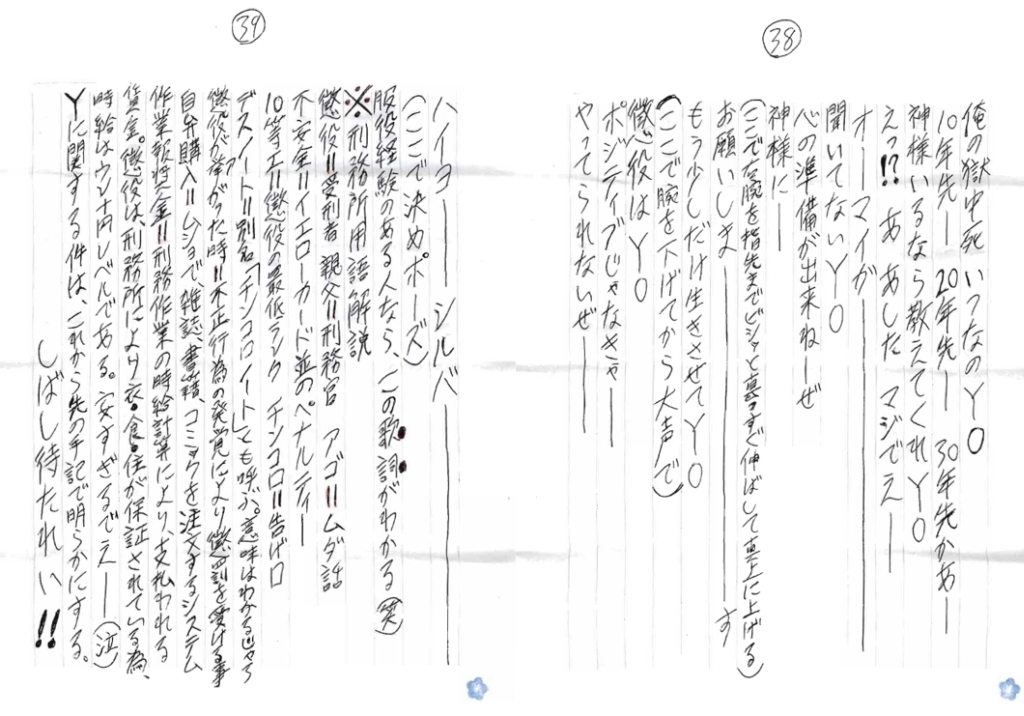 38
俺の獄中死 いつなのYO
10年先ー 20年先ー 30年先かあー
神様いるなら教えてくれYO
えっ!? あ あした マジでえー
オーーマイガーーー
聞いてないYO
心の準備が出来ねーぜ
神様にー
(ここで左腕を指先までビシッと真っすぐ伸ばして真上に上げる)
お願いしまーーーす
もう少しだけ生きさせてYO
(ここで腕を下げてから大声で)
懲役はYO
ポジティブじゃなきゃー
やってられないぜーーー
39
ハイヨーーーシルバーーーー
(ここで決めポーズ)
服役経験のある人なら、この歌詞がわかる(笑)
※刑務所用語解説
懲役=受刑者 親父=刑務官 アゴ=ムダ話
不安全=イエローカード並のペナルティー
10等工=懲役の最低ランク チンコロ=告げ口
デスノート=別名「チンコロノート」とも呼ぶ。意味はわかるじゃろ
懲役が挙がった時=不正行為の発覚により懲罰を受ける事
自弁購入=ムショで、雑誌、書籍、コミックを注文するシステム
作業報奨金=刑務作業の時給計算により、支払われる
賃金。懲役は、刑務所により衣・食・住が保証されている為、
時給はウン十円レベルである。安すぎるでえー(泣)
Yに関する件は、これから先の手記で明らかにする。
しばし待たれい!!